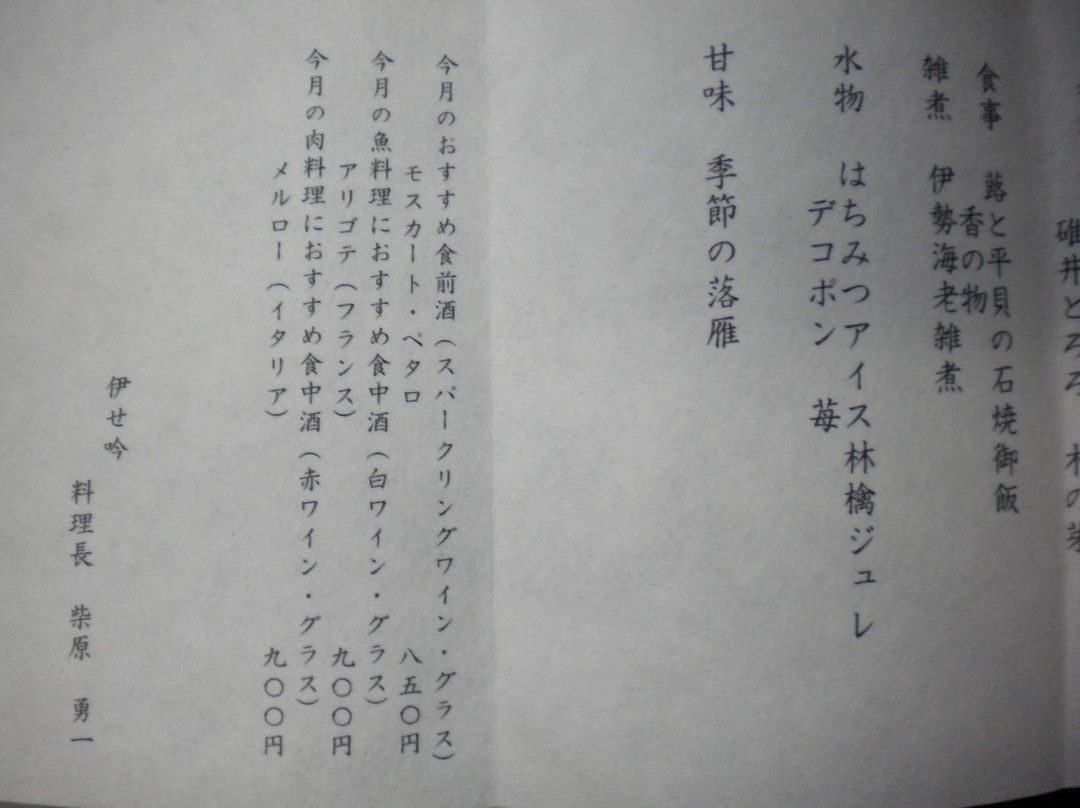 碓井とろろ 木の芽
食事 蕗と平貝の石焼御飯
香の物
雑煮 伊勢海老雑煮
水物 はちみつアイス林檎ジュレ
デコポン 苺
甘味 季節の落雁
今月のおすすめ食前酒（スパークリングワイン・グラス）
モスカート・ペタロ 八五〇円
今月の魚料理におすすめ食中酒（白ワイン・グラス）
アリゴテ（フランス） 九〇〇円
今月の肉料理におすすめ食中酒（赤ワイン・グラス）
メルロー（イタリア） 九〇〇円
伊せ吟
料理長 柴原 勇一